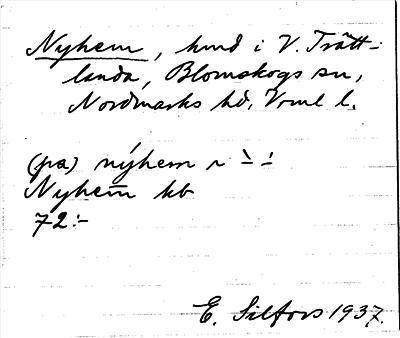 Nyhem, hmd i V. Trätt-
landa, Blomskogs sn,
Nordmarks hd, Vrml l.
(på) nýhem n
Nyhem kb
72:-
E. Silfors 1937.